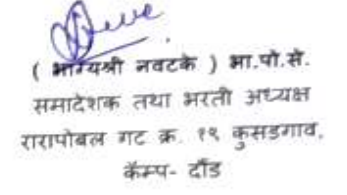 ( भाग्यश्री नवटके ) भा.पो.से.
समादेशक तथा भरती अध्यक्ष
रारापोबल गट क्र. १९ कुसडगाव,
कॅम्प- दौंड